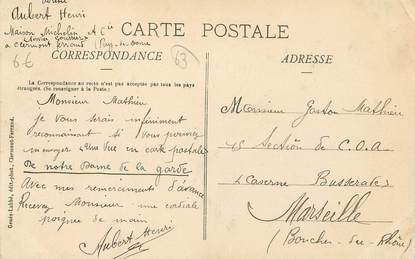 Aubert Henri
Maison Michelin et Cie
a Clermont Ferrand (Puy-de-Dome
6€
63
CARTE POSTALE
CORRESPONDANCE
ADRESSE
La Correspondance au recto n'est pas acceptée par tous les pays
étrangers. (Se renseigner à la Poste.)
Monsieur Mathieu
je vous serais infiniment
reconnaissant si vous pouviez
m'envoyer une vue en carte postale
De notre Dame de la garde
Avec mes remerciements d'avance
Recevez Monsieur une cordiale
poignée de main
Aubert Henri
Monsieur Gaston Mathieu
15 Section de C.O.A
Caserne Busserade
Marseille
(Bouches-du-Rhône)
Gendé-Labbé, édit.-phot., Clermont-Ferrand.